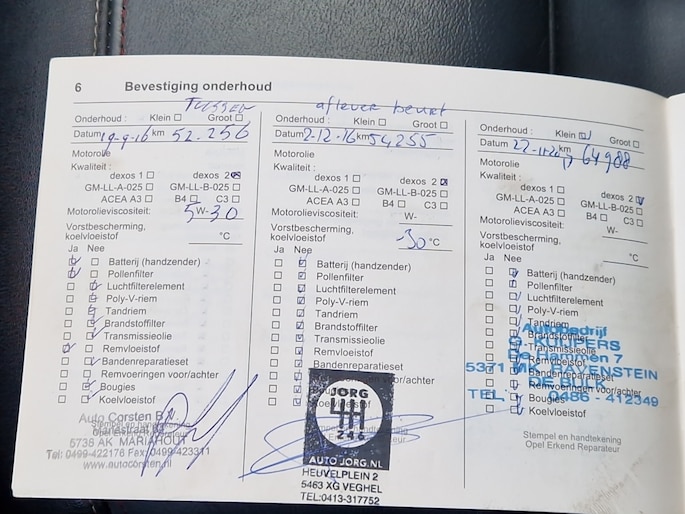 6 Bevestiging onderhoud
TUSSEN
Onderhoud : Klein Groot
Datum 19-9-16 km 52.256
Motorolie
Kwaliteit : dexos 1 dexos 2
GM-LL-A-025 GM-LL-B-025
ACEA A3 B4 C3
Motorolieviscositeit: 5 W- 30
Vorstbescherming,
koelvloeistof: °C
Ja Nee
Batterij (handzender)
Pollenfilter
Luchtfilterelement
Poly-V-riem
Tandriem
Brandstoffilter
Transmissieolie
Remvloeistof
Bandenreparatieset
Remvoeringen voor/achter
Bougies
Koelvloeistof
Auto Corsten B.V.
5735 AK MARIAHOUT
Tel: 0499-422176 Fax: 0499-423311
www.autocorsten.nl
aflever beurt
Onderhoud : Klein Groot
Datum 2-12-16 km 54255
Motorolie
Kwaliteit : dexos 1 dexos 2
GM-LL-A-025 GM-LL-B-025
ACEA A3 B4 C3
Motorolieviscositeit: W-
Vorstbescherming,
koelvloeistof: -30 °C
Ja Nee
Batterij (handzender)
Pollenfilter
Luchtfilterelement
Poly-V-riem
Tandriem
Brandstoffilter
Transmissieolie
Remvloeistof
Bandenreparatieset
Remvoeringen voor/achter
Bougies
JORG
246
AUTO JORG.NL
HEUVELPLEIN 2
5463 XG VEGHEL
TEL:0413-317752
Onderhoud : Klein Groot
Datum km 64988
Motorolie
Kwaliteit : dexos 1 dexos 2
GM-LL-A-025 GM-LL-B-025
ACEA A3 B4 C3
Motorolieviscositeit: W-
Vorstbescherming,
koelvloeistof: °C
Ja Nee
Batterij (handzender)
Pollenfilter
Luchtfilterelement
Poly-V-riem
Tandriem
Brandstoffilter
Transmissieolie
Remvloeistof
Bandenreparatieset
Remvoeringen voor/achter
Bougies
Koelvloeistof
Autobedrijf
KUIJPERS
De Hammen 7
5371 MK RAVENSTEIN
TEL. 0486 - 412349
Stempel en handtekening
Opel Erkend Reparateur